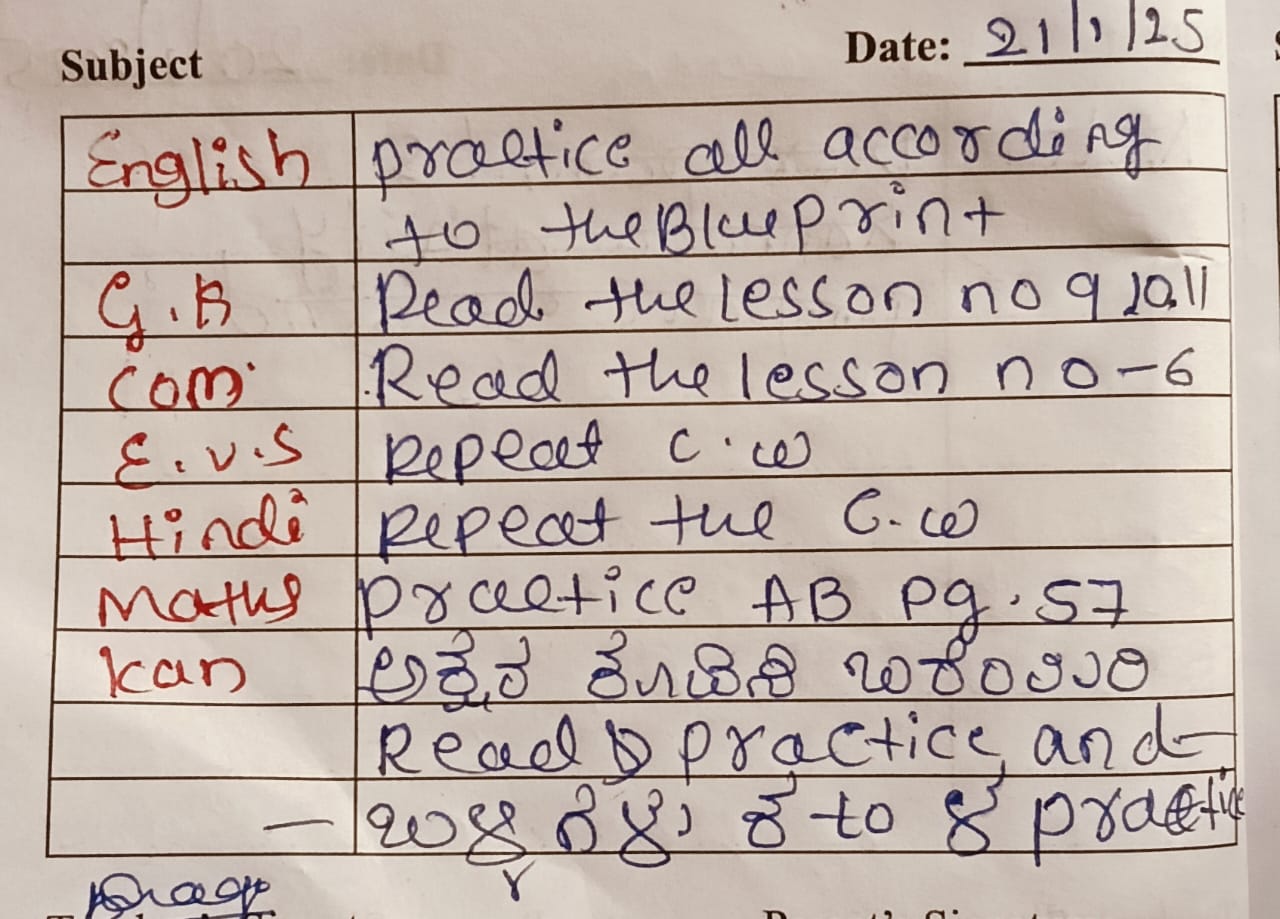 Subject Date: 21/1/25
English practice all according
to the Blueprint
G.K Read the lesson no 9 10,11
Com. Read the lesson no-6
E.V.S Repeat C.W
Hindi Repeat the C.W
Maths practice AB pg.57
Kan ಅಕ್ಷರ ಕೂಡಿಸಿ ಬರೆಯಿರಿ
Read & practice and
- ಒತ್ತಕ್ಷರಗಳು ಕ to ಳ practice